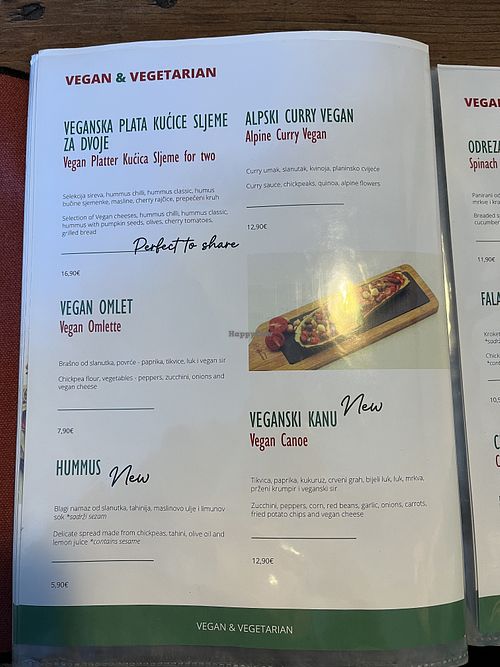 VEGAN & VEGETARIAN
VEGANSKA PLATA KUĆICE SLJEME
ZA DVOJE
Vegan Platter Kućica Sljeme for two
Selekcija sireva, hummus chilli, hummus classic, humus
bučine sjemenke, masline, cherry rajčice, prepečeni kruh
Selection of Vegan cheeses, hummus chilli, hummus classic,
hummus with pumpkin seeds, olives, cherry tomatoes,
grilled bread
Perfect to share
16,90€
VEGAN OMLET
Vegan Omlette
Brašno od slanutka, povrće - paprika, tikvice, luk i vegan sir
Chickpea flour, vegetables - peppers, zucchini, onions and
vegan cheese
7,90€
HUMMUS
New
Blagi namaz od slanutka, tahinija, maslinovo ulje i limunov
sok *sadrži sezam
Delicate spread made from chickpeas, tahini, olive oil and
lemon juice *contains sesame
5,90€
ALPSKI CURRY VEGAN
Alpine Curry Vegan
Curry umak, slanutak, kvinoja, planinsko cvijeće
Curry sauce, chickpeas, quinoa, alpine flowers
12,90€
Happy
VEGANSKI KANU
New
Vegan Canoe
Tikvica, paprika, kukuruz, crveni grah, bijeli luk, luk, mrkva,
prženi krumpir i veganski sir
Zucchini, peppers, corn, red beans, garlic, onions, carrots,
fried potato chips and vegan cheese
12,90€
VEGAN & VEGETARIAN
VEGAN
ODREZA
Spinach
Panirani od
mrkve i kra
Breaded s
cucumber
11,90€
FALA
Kroket
*sadrž
Chick
*cont
10,